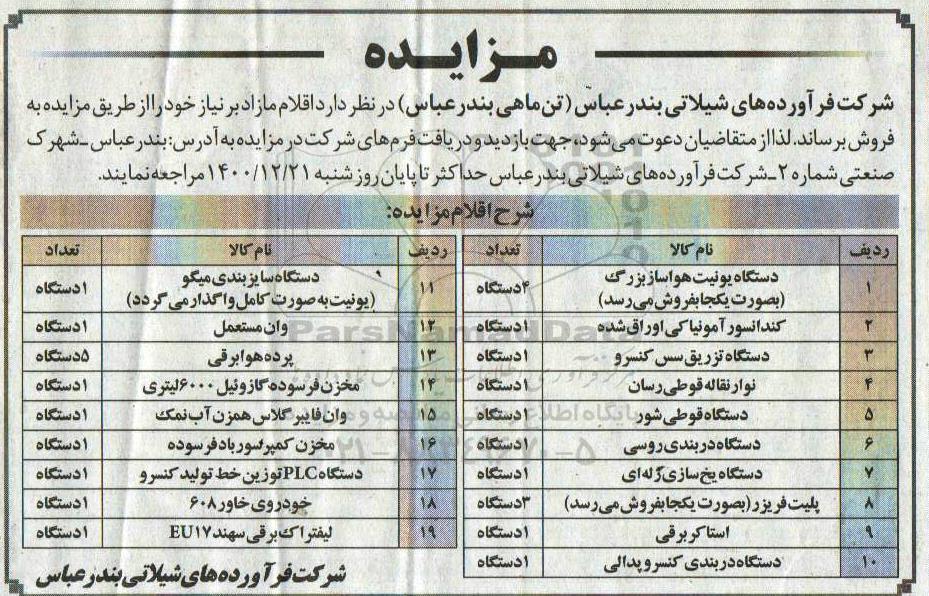 مزایده
شرکت فرآورده‌های شیلاتی بندرعباس (تن ماهی بندرعباس) در نظر دارد اقلام مازاد بر نیاز خود را از طریق مزایده به
فروش برساند. لذا از متقاضیان دعوت می‌شود، جهت بازدید و دریافت فرم‌های شرکت در مزایده به آدرس: بندرعباس ـ شهرک
صنعتی شماره ۲ ـ شرکت فرآورده‌های شیلاتی بندرعباس حداکثر تا پایان روز شنبه ۱۴۰۰/۱۲/۲۱ مراجعه نمایند.
شرح اقلام مزایده:
ردیف نام کالا تعداد
۱ دستگاه یونیت هواساز بزرگ (بصورت یکجا بفروش می‌رسد) ۴دستگاه
۲ کندانسور آمونیاکی اوراق شده ۱دستگاه
۳ دستگاه تزریق سس کنسرو ۱دستگاه
۴ نوار نقاله قوطی رسان ۱دستگاه
۵ دستگاه قوطی شور ۱دستگاه
۶ دستگاه دربندی روسی ۱دستگاه
۷ دستگاه یخ سازی ژله‌ای ۱دستگاه
۸ پلیت فریزر (بصورت یکجا بفروش می‌رسد) ۳دستگاه
۹ استاکر برقی ۱دستگاه
۱۰ دستگاه دربندی کنسرو پدالی ۱دستگاه
ردیف نام کالا تعداد
۱۱ دستگاه سایزبندی میگو (یونیت به صورت کامل واگذار می گردد) ۱دستگاه
۱۲ وان مستعمل ۱دستگاه
۱۳ پرده هوا برقی ۵دستگاه
۱۴ مخزن فرسوده گازوئیل ۶۰۰۰ لیتری ۱دستگاه
۱۵ وان فایبرگلاس همزن آب نمک ۱دستگاه
۱۶ مخزن کمپرسور باد فرسوده ۱دستگاه
۱۷ دستگاه PLC توزین خط تولید کنسرو ۱دستگاه
۱۸ خودروی خاور ۶۰۸ ۱دستگاه
۱۹ لیفتراک برقی سهند EU۱۷ ۱دستگاه
شرکت فرآورده‌های شیلاتی بندرعباس
ParsNamadData